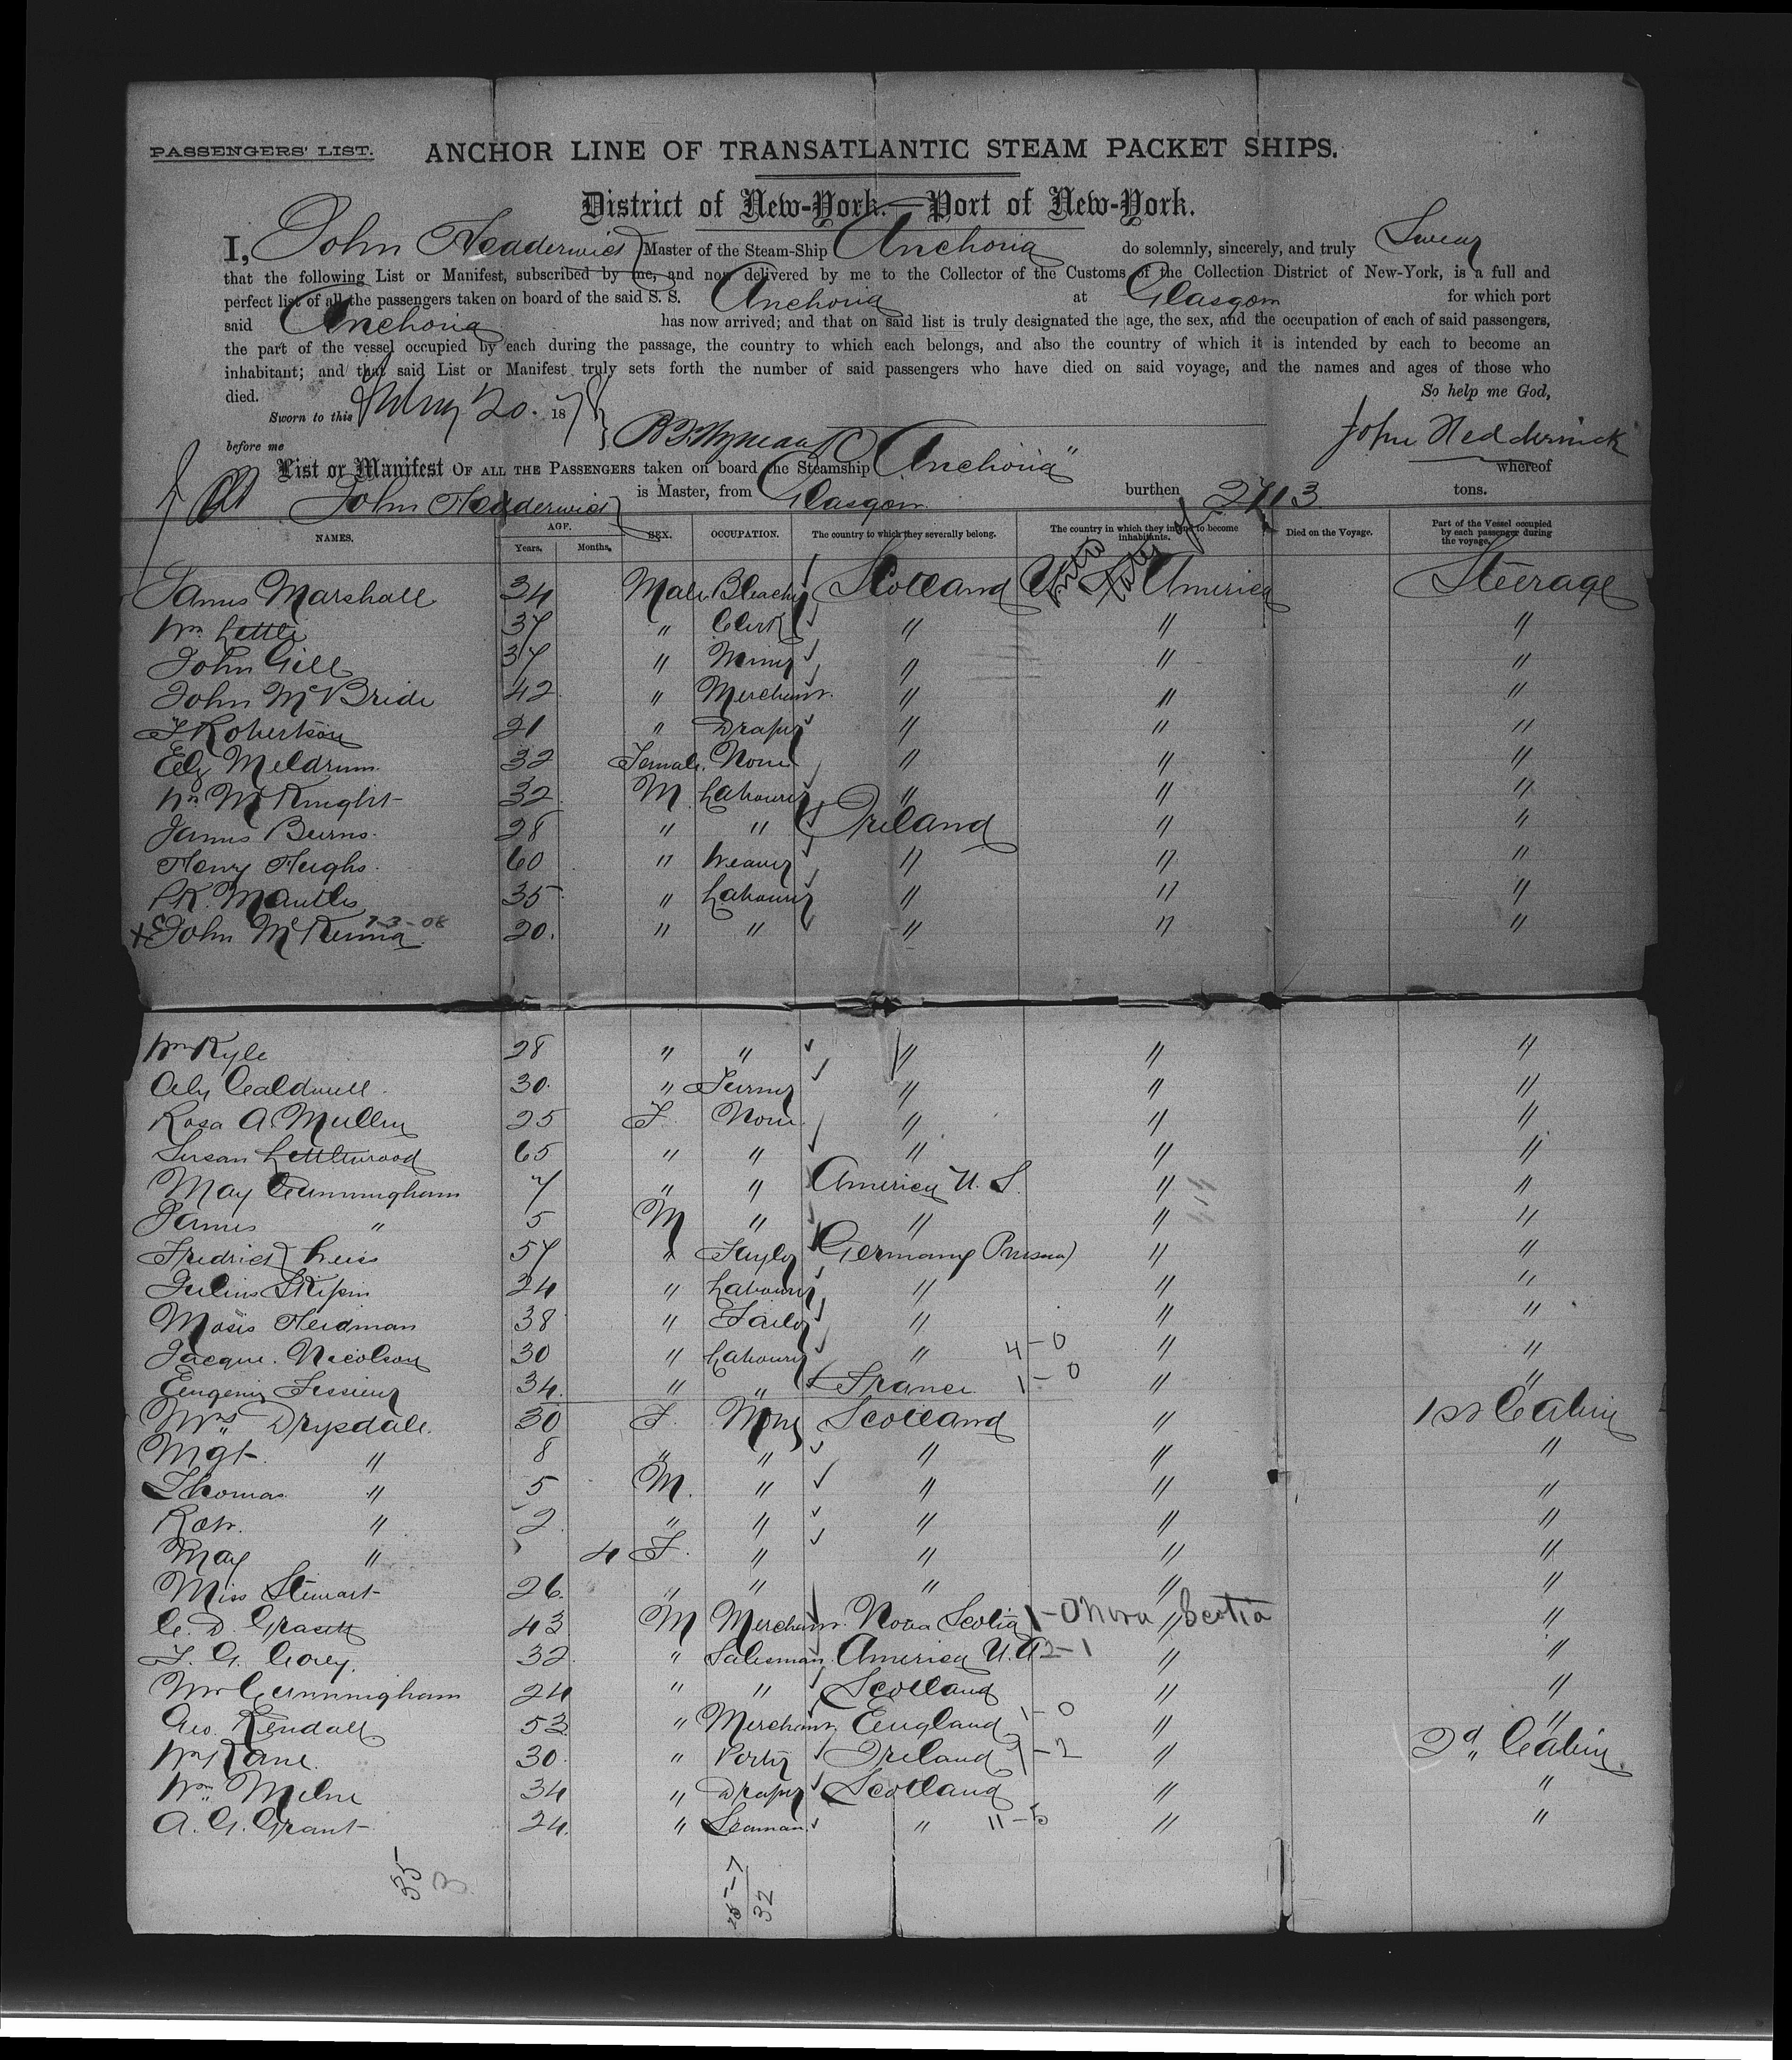 PASSENGERS' LIST.
ANCHOR LINE OF TRANSATLANTIC STEAM PACKET SHIPS.
District of New-York.—Port of New-York.
I, John Hedderwick Master of the Steam-Ship Anchoria do solemnly, sincerely, and truly Swear
that the following List or Manifest, subscribed by me, and now delivered by me to the Collector of the Customs of the Collection District of New-York, is a full and
perfect list of all the passengers taken on board of the said S. S. Anchoria at Glasgow for which port
said Anchoria has now arrived; and that on said list is truly designated the age, the sex, and the occupation of each of said passengers,
the part of the vessel occupied by each during the passage, the country to which each belongs, and also the country of which it is intended by each to become an
inhabitant; and that said List or Manifest truly sets forth the number of said passengers who have died on said voyage, and the names and ages of those who
died. So help me God,
Sworn to this 20. 1878
before me John Hedderwick
List or Manifest OF ALL THE PASSENGERS taken on board the Steamship "Anchoria" whereof
John Hedderwick is Master, from Glasgow burthen 2713 tons.
NAMES. AGE. Years. Months. SEX. OCCUPATION. The country to which they severally belong. The country in which they intend to become inhabitants. Died on the Voyage. Part of the Vessel occupied by each passenger during the voyage.
James Marshall 34 Male Bleacher Scotland United States of America Steerage
Wm Lettle 37 " Clerk " " "
John Gill 37 " Miner " " "
John McBride 42 " Merchant. " " "
T Robertson 21 " Draper " " "
Eliz Meldrum 32 Female. None " " "
Wm McKnight 32 M Labourer " " "
James Burns 28 " " Ireland " "
Henry Hughs 60 " Weaver " " "
PK. Mantles 35 " Labourer " " "
X John McKenna 7-3-08 20. " " " " "
Wm Kyle 28 " " " " "
Alex Caldwell 30. " Turner " " "
Rosa A. Mullen 25 F. None. " " "
Susan Lettlewood 65 " " " " "
May Cunningham 7 " " America U.S. " "
James " 5 M " " " "
Fredrick Weiss 57 " Taylor Germany (Prussia) " "
Julius Skipin 24 " Labourer " " "
Moses Heidman 38 " Tailor " " "
Jacque. Nicolson 30 " Labourer " 4-0 " "
Eugenie Tessieur 34. " " France 1-0 " "
Mrs Drysdale. 30 F. None Scotland " 1st Cabin
Mgt. " 8 " " " " "
Thomas " 5 M. " " " "
Robt. " 2 " " " " "
May " 4 F. " " " "
Miss Stewart 26. " " " " "
C. D. Grasett 43 M Merchant. Nova Scotia 1-0 Nova Scotia " "
T. G. Corey. 32 " Salesman. America U.S. 2-1 " "
Wm Cunningham 24 " " Scotland " "
Geo. Kendall 53 " Merchant, England 1-0 " "
Wm Kane. 30. " Porter Ireland 9-2 " 2d Cabin.
Wm Milne 34 " Draper Scotland " "
A. G. Grant 24. " Seaman. " 11-5 " "
55
25-7
32